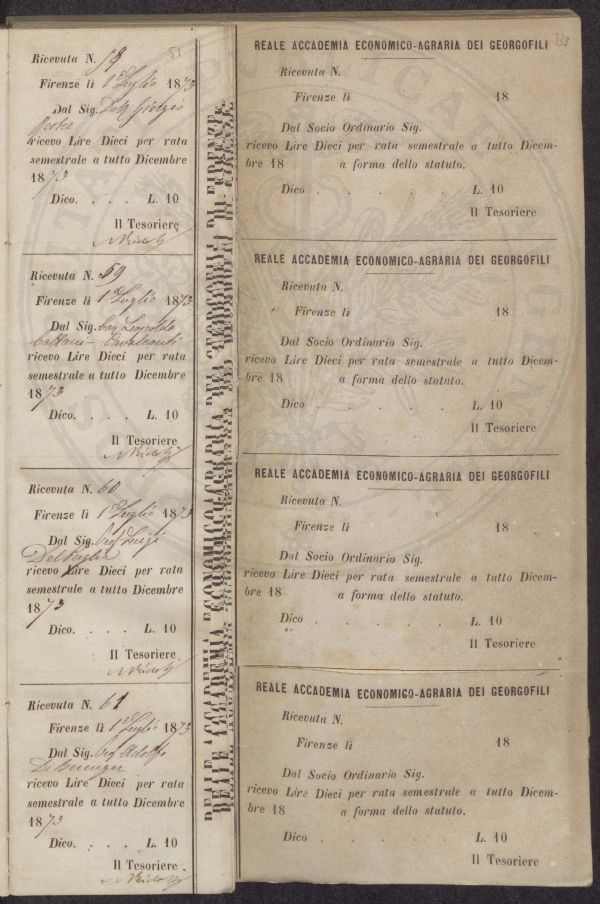 Ricevuta N. 58
51
Firenze lì 1° Luglio 1873
Dal Sig. Dott. Giorgio
ricevo Lire Dieci per rata
semestrale a tutto Dicembre
1873
Dico. . . . L. 10
Il Tesoriere
Ricevuta N. 59
Firenze lì 1° Luglio 1873
Dal Sig. Cav. Leopoldo
Cattani-Cavalcanti
ricevo Lire Dieci per rata
semestrale a tutto Dicembre
1873
Dico. . . . L. 10
Il Tesoriere
Ricevuta N. 60
Firenze lì 1° Luglio 1873
Dal Sig. Prof. Luigi
Del Puglia
ricevo Lire Dieci per rata
semestrale a tutto Dicembre
1873
Dico. . . . L. 10
Il Tesoriere
Ricevuta N. 61
Firenze lì 1° Luglio 1873
Dal Sig. Prof. Adolfo
Di Berenger
ricevo Lire Dieci per rata
semestrale a tutto Dicembre
1873
Dico. . . . L. 10
Il Tesoriere
REALE ACCADEMIA ECONOMICO-AGRARIA DEI GEORGOFILI DI FIRENZE
REALE ACCADEMIA ECONOMICO-AGRARIA DEI GEORGOFILI
Ricevuta N.
Firenze lì 18
Dal Socio Ordinario Sig.
ricevo Lire Dieci per rata semestrale a tutto Dicem-
bre 18 a forma dello statuto.
Dico . . . . . L. 10
Il Tesoriere
REALE ACCADEMIA ECONOMICO-AGRARIA DEI GEORGOFILI
Ricevuta N.
Firenze lì 18
Dal Socio Ordinario Sig.
ricevo Lire Dieci per rata semestrale a tutto Dicem-
bre 18 a forma dello statuto.
Dico . . . . . L. 10
Il Tesoriere
REALE ACCADEMIA ECONOMICO-AGRARIA DEI GEORGOFILI
Ricevuta N.
Firenze lì 18
Dal Socio Ordinario Sig.
ricevo Lire Dieci per rata semestrale a tutto Dicem-
bre 18 a forma dello statuto.
Dico . . . . . L. 10
Il Tesoriere
REALE ACCADEMIA ECONOMICO-AGRARIA DEI GEORGOFILI
Ricevuta N.
Firenze lì 18
Dal Socio Ordinario Sig.
ricevo Lire Dieci per rata semestrale a tutto Dicem-
bre 18 a forma dello statuto.
Dico . . . . . L. 10
Il Tesoriere